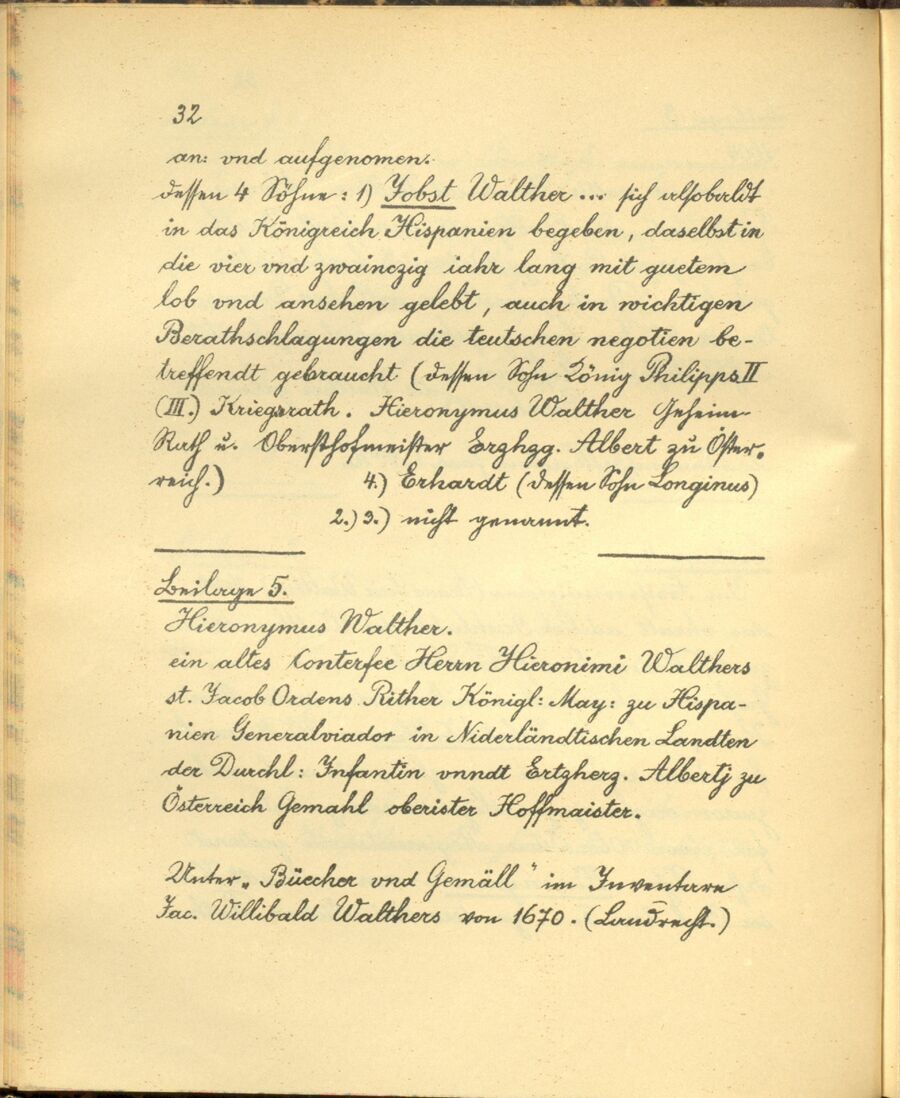 32
an: vnd aufgenomen.
dessen 4 Söhne: 1) Jobst Walther ... sich alsobaldt
in das Königreich Hispanien begeben, daselbst in
die vier vnd zwainczig iahr lang mit guetem
lob vnd ansehen gelebt, auch in wichtigen
Berathschlagungen die teutschen negotien be-
treffendt gebraucht (dessen Sohn König Philipps II
(III.) Kriegsrath. Hieronymus Walther Geheim-
Rath u. Obersthofmeister Erzhzg. Albert zu Öster-
reich.) 4.) Erhardt (dessen Sohn Longinus)
2.) 3.) nicht genannt.
Beilage 5.
Hieronymus Walther.
ein altes Conterfee Herrn Hieronimi Walthers
st. Jacob Ordens Rither Königl: May: zu Hispa-
nien Generalviador in Niderländtischen Landten
der Durchl: Infantin vnndt Ertzherg. Albertj zu
Österreich Gemahl oberister Hoffmaister.
Unter „Büecher vnd Gemäll" im Inventare
Jac. Willibald Walthers von 1670. (Landrecht.)